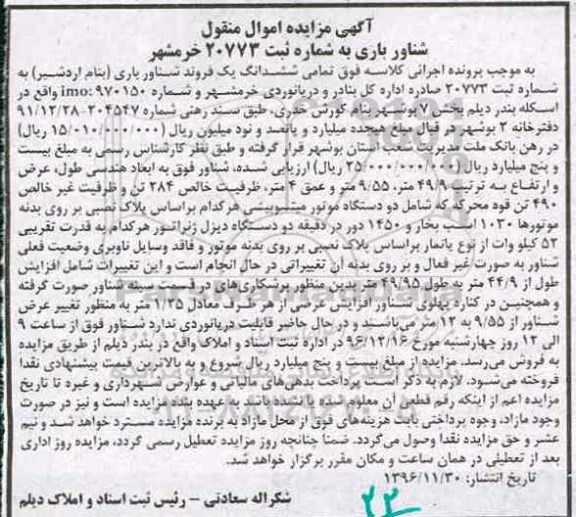 آگهی مزایده اموال منقول
شناور باری به شماره ثبت ۲۰۷۷۳ خرمشهر
به موجب پرونده اجرائی کلاسه فوق تمامی ششدانگ یک فروند شناور باری (بنام اردشیر) به
شماره ثبت ۲۰۷۷۳ صادره اداره کل بنادر و دریانوردی خرمشهر و شماره imo:۹۷۰۱۵۰ واقع در
اسکله بندر دیلم بخش ۷ بوشهر بنام کورش خدری، طبق سند رهنی شماره ۲۰۴۵۴۷-۹۱/۱۲/۲۸
دفترخانه ۲ بوشهر در قبال مبلغ هیجده میلیارد و پانصد و نود میلیون ریال (۱۵/۰۱۰/۰۰۰/۰۰۰ ریال)
در رهن بانک ملت مدیریت شعب استان بوشهر قرار گرفته و طبق نظر کارشناس رسمی به مبلغ بیست
و پنج میلیارد ریال (۲۵/۰۰۰/۰۰۰/۰۰۰ ریال) ارزیابی شده، شناور فوق به ابعاد هندسی طول، عرض
و ارتفاع به ترتیب ۴۹/۹ متر، ۹/۵۵ متر و عمق ۴ متر، ظرفیت خالص ۲۸۴ تن و ظرفیت غیر خالص
۴۹۰ تن قوه محرکه که شامل دو دستگاه موتور میتسوبیشی هرکدام براساس پلاک نصبی بر روی بدنه
موتورها ۱۰۳۰ اسب بخار و ۱۴۵۰ دور در دقیقه دو دستگاه دیزل ژنراتور هرکدام به قدرت تقریبی
۵۲ کیلو وات از نوع یانمار براساس پلاک نصبی بر روی بدنه موتور و فاقد وسایل ناوبری وضعیت فعلی
شناور به صورت غیر فعال و بر روی بدنه آن تغییراتی در حال انجام است و این تغییرات شامل افزایش
طول از ۴۴/۹ متر به طول ۴۹/۹۵ متر بدین منظور برشکاری‌های در قسمت سینه شناور صورت گرفته
و همچنین در کناره پهلوی شناور افزایش عرضی از هر طرف معادل ۱/۲۵ متر به منظور تغییر عرض
شناور از ۹/۵۵ به ۱۲ متر می‌باشند و در حال حاضر قابلیت دریانوردی ندارد شناور فوق از ساعت ۹
الی ۱۲ روز چهارشنبه مورخ ۹۶/۱۲/۱۶ در اداره ثبت اسناد و املاک واقع در بندر دیلم از طریق مزایده
به فروش می‌رسد. مزایده از مبلغ بیست و پنج میلیارد ریال شروع و به بالاترین قیمت پیشنهادی نقدا
فروخته می‌شود. لازم به ذکر است پرداخت بدهی‌های مالیاتی و عوارض شهرداری و غیره تا تاریخ
مزایده اعم از اینکه رقم قطعی آن معلوم شده یا نشده باشد به عهده برنده مزایده است و نیز در صورت
وجود مازاد، وجوه پرداختی بابت هزینه‌های فوق از محل مازاد به برنده مزایده مسترد خواهد شد و نیم
عشر و حق مزایده نقدا وصول می‌گردد. ضمنا چنانچه روز مزایده تعطیل رسمی گردد، مزایده روز اداری
بعد از تعطیلی در همان ساعت و مکان مقرر برگزار خواهد شد.
تاریخ انتشار: ۱۳۹۶/۱۱/۳۰
شکراله سعادتی - رئیس ثبت اسناد و املاک دیلم
۲۳